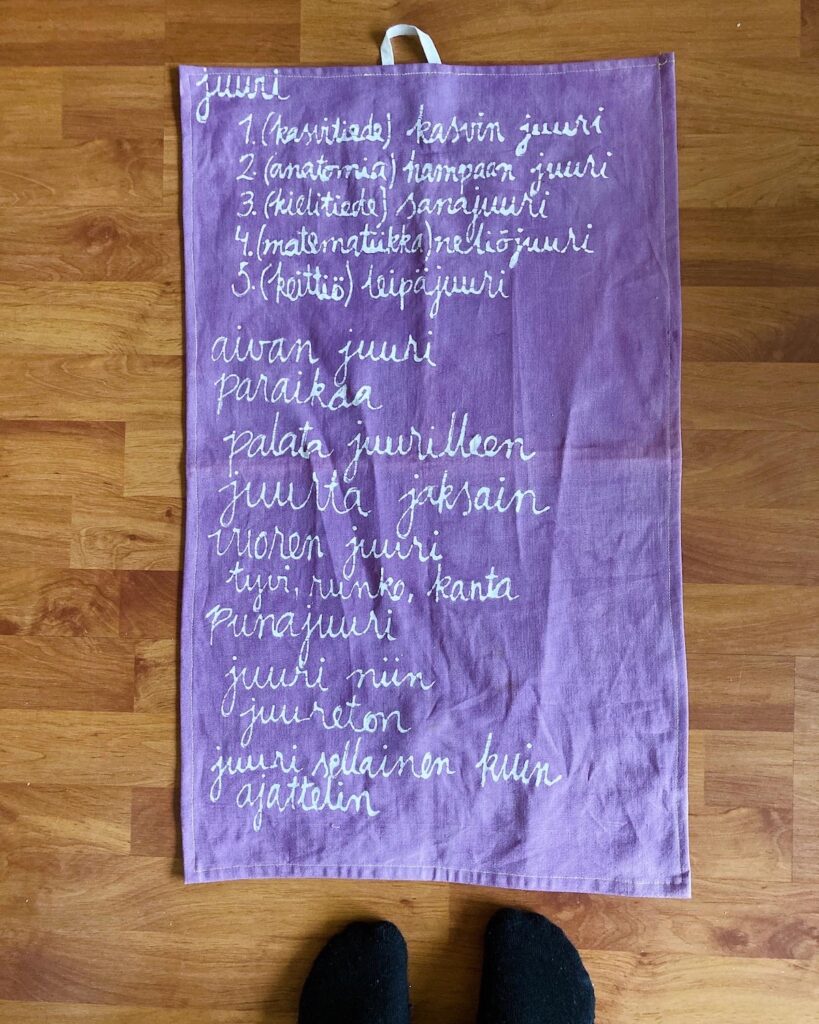 juuri
1. (kasvitiede) kasvin juuri
2 (anatomia) hampaan juuri
3. (kielitiede) sanajuuri
4. (matematiikka) neliöjuuri
5. (keittiö) leipäjuuri
aivan juuri
paraikaa
palata juurilleen
juurta jaksain
vuoren juuri
tyvi, runko, kanta
punajuuri
juuri niin
juureton
juuri sellainen kuin
ajattelin